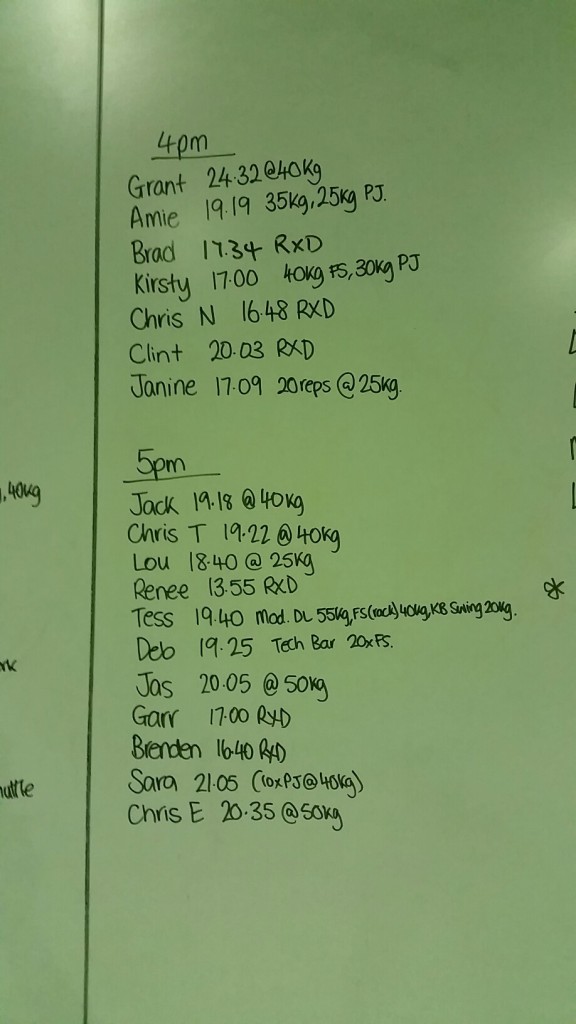 4pm
Grant 24.32@40kg
Amie 19.19 35kg, 25kg PJ.
Brad 17.34 RXD
Kirsty 17.00 40kg FS, 30kg PJ
Chris N 16.48 RXD
Clint 20.03 RXD
Janine 17.09 20reps @ 25kg.
5pm
Jack 19.18 @ 40kg
Chris T 19.22 @ 40kg
Lou 18.40 @ 25kg
Renee 13.55 RXD
Tess 19.40 Mod. DL 55kg, FS (rack) 40kg, KB Swing 20kg.
Deb 19.25 Tech Bar 20xFS.
Jas 20.05 @ 50kg
Garr 17.00 RXD
Brenden 16.40 RXD
Sara 21.05 (10xPJ@40kg)
Chris E 20.35 @50kg
, 40kg
*